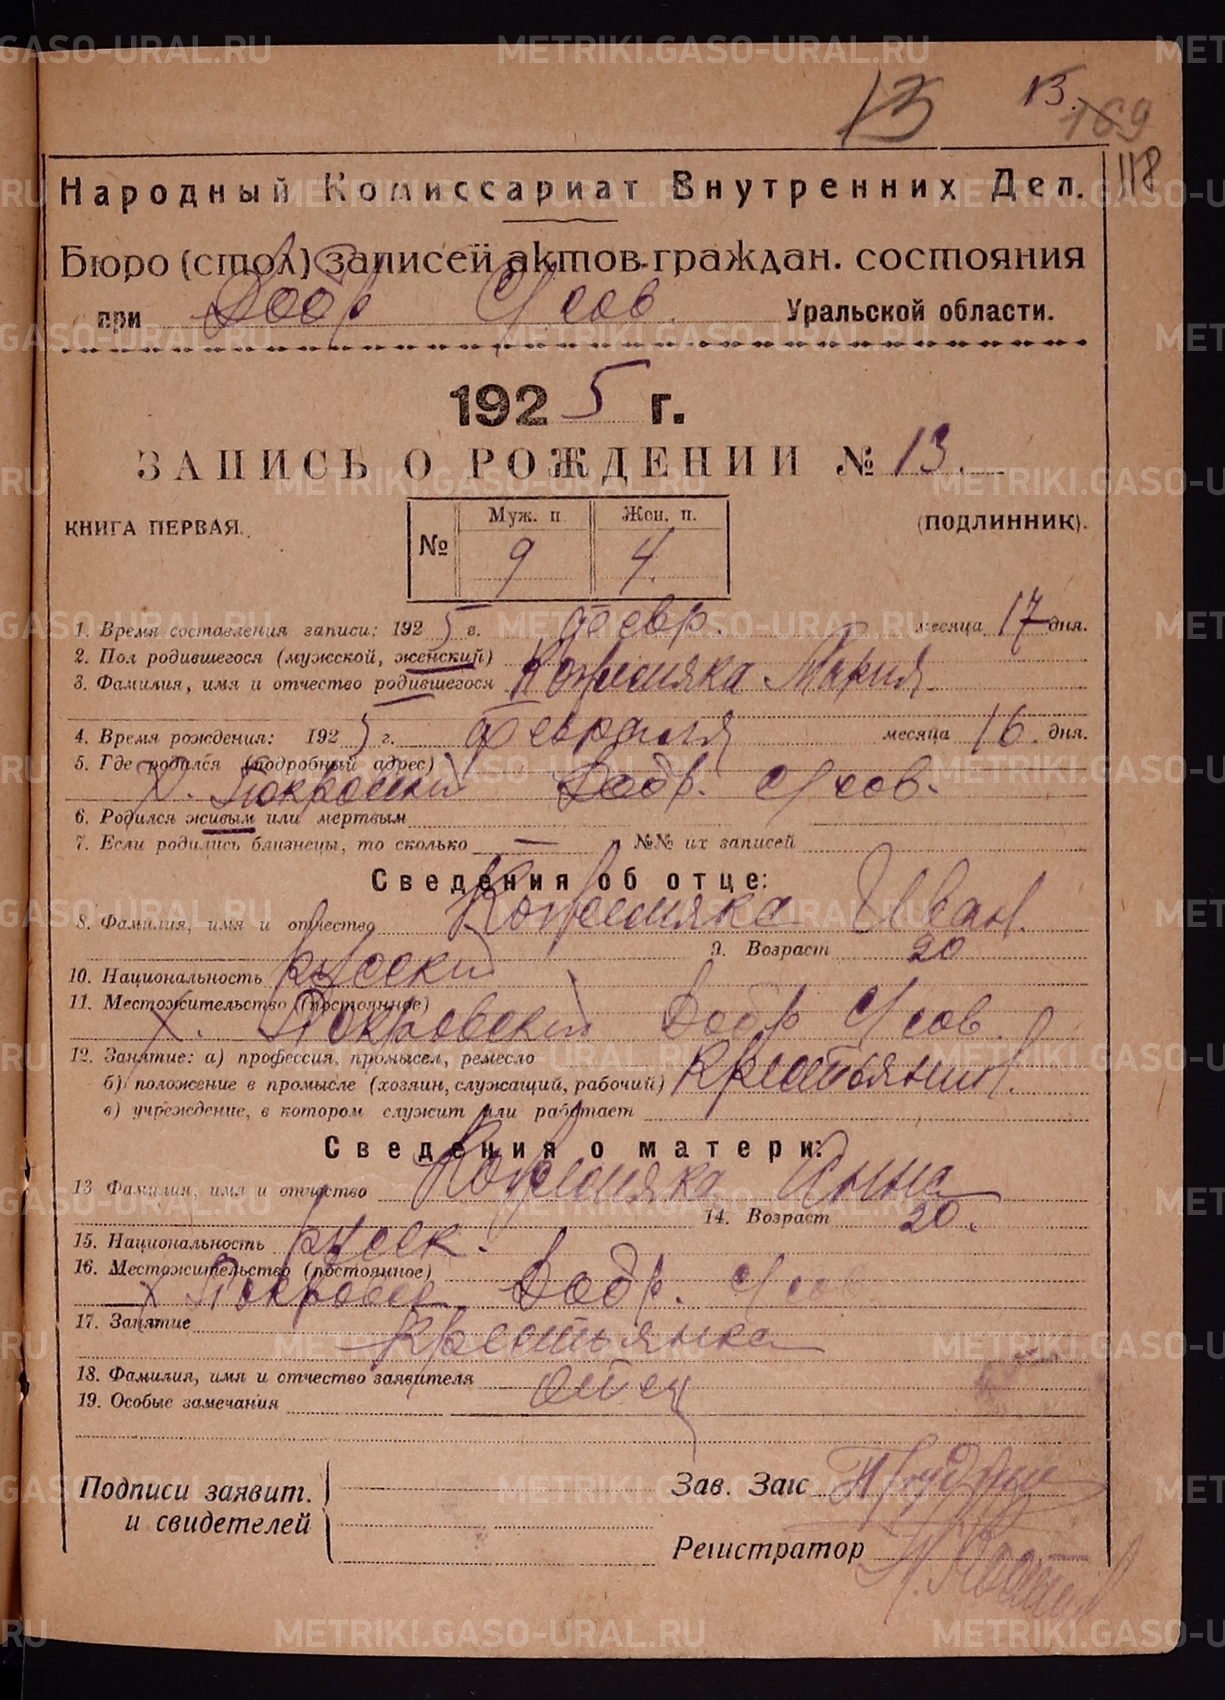 METRIKI.GASO-URAL.RU
13
13.
169
118
Народный Комиссариат Внутренних Дел.
Бюро (стол) записей актов граждан. состояния
при Добр Усов. Уральской области.
1925 г.
ЗАПИСЬ О РОЖДЕНИИ № 13.
КНИГА ПЕРВАЯ. (ПОДЛИННИК).
№ Муж. п. Жен. п.
9 4.
1. Время составления записи: 1925 г. февр. месяца 17 дня.
2. Пол родившегося (мужской, женский)
3. Фамилия, имя и отчество родившегося Кожемяка Мария
4. Время рождения: 1925 г. февраля месяца 16 дня.
5. Где родился (подробный адрес)
Х. Покровский Добр. Усов.
6. Родился живым или мертвым
7. Если родились близнецы, то сколько — №№ их записей
Сведения об отце:
8. Фамилия, имя и отчество Кожемяка Иван.
9. Возраст 20
10. Национальность русский
11. Местожительство (постоянное)
Х. Покровский Добр Усов.
12. Занятие: а) профессия, промысел, ремесло
б) положение в промысле (хозяин, служащий, рабочий) Крестьянин.
в) учреждение, в котором служит или работает
Сведения о матери:
13 Фамилия, имя и отчество Кожемяка Анна
14. Возраст 20.
15. Национальность русск.
16. Местожительство (постоянное)
Х Покровск Добр. Усов.
17. Занятие
Крестьянка
18. Фамилия, имя и отчество заявителя отец
19. Особые замечания
Подписи заявит. Зав. Загс
и свидетелей
Регистратор